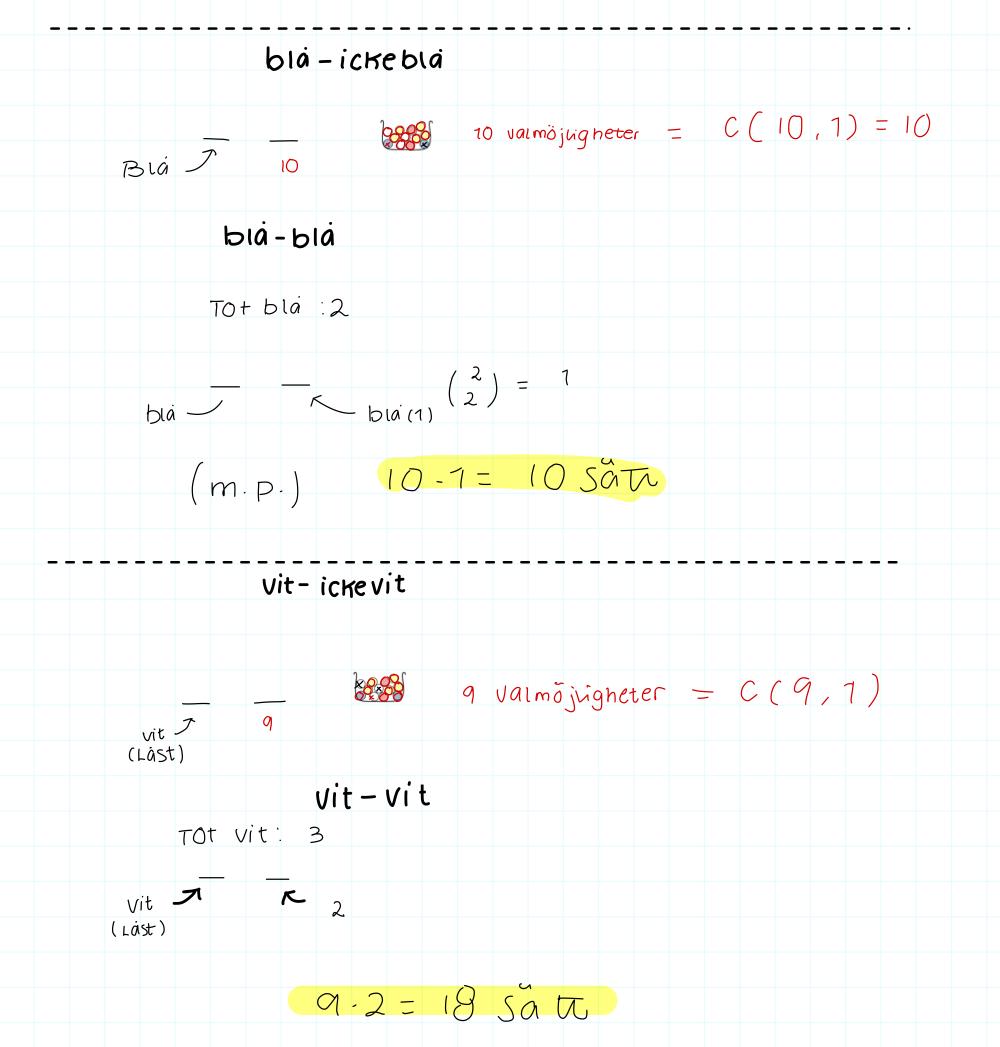 blå - ickeblå
10 valmöjligheter = C(10,1) = 10
Blå
10
blå - blå
Tot blå : 2
(2 2) = 1
blå
blå (1)
(m.p.) 10 · 1 = 10 sätt
vit - ickevit
9 valmöjligheter = C(9,1)
9
vit
(Låst)
vit - vit
Tot vit: 3
vit
2
(Låst)
9 · 2 = 18 sätt